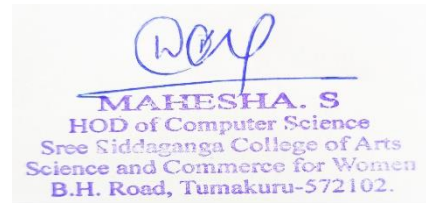 MAHESHA. S
HOD of Computer Science
Sree Siddaganga College of Arts
Science and Commerce for Women
B.H. Road, Tumakuru-572102.